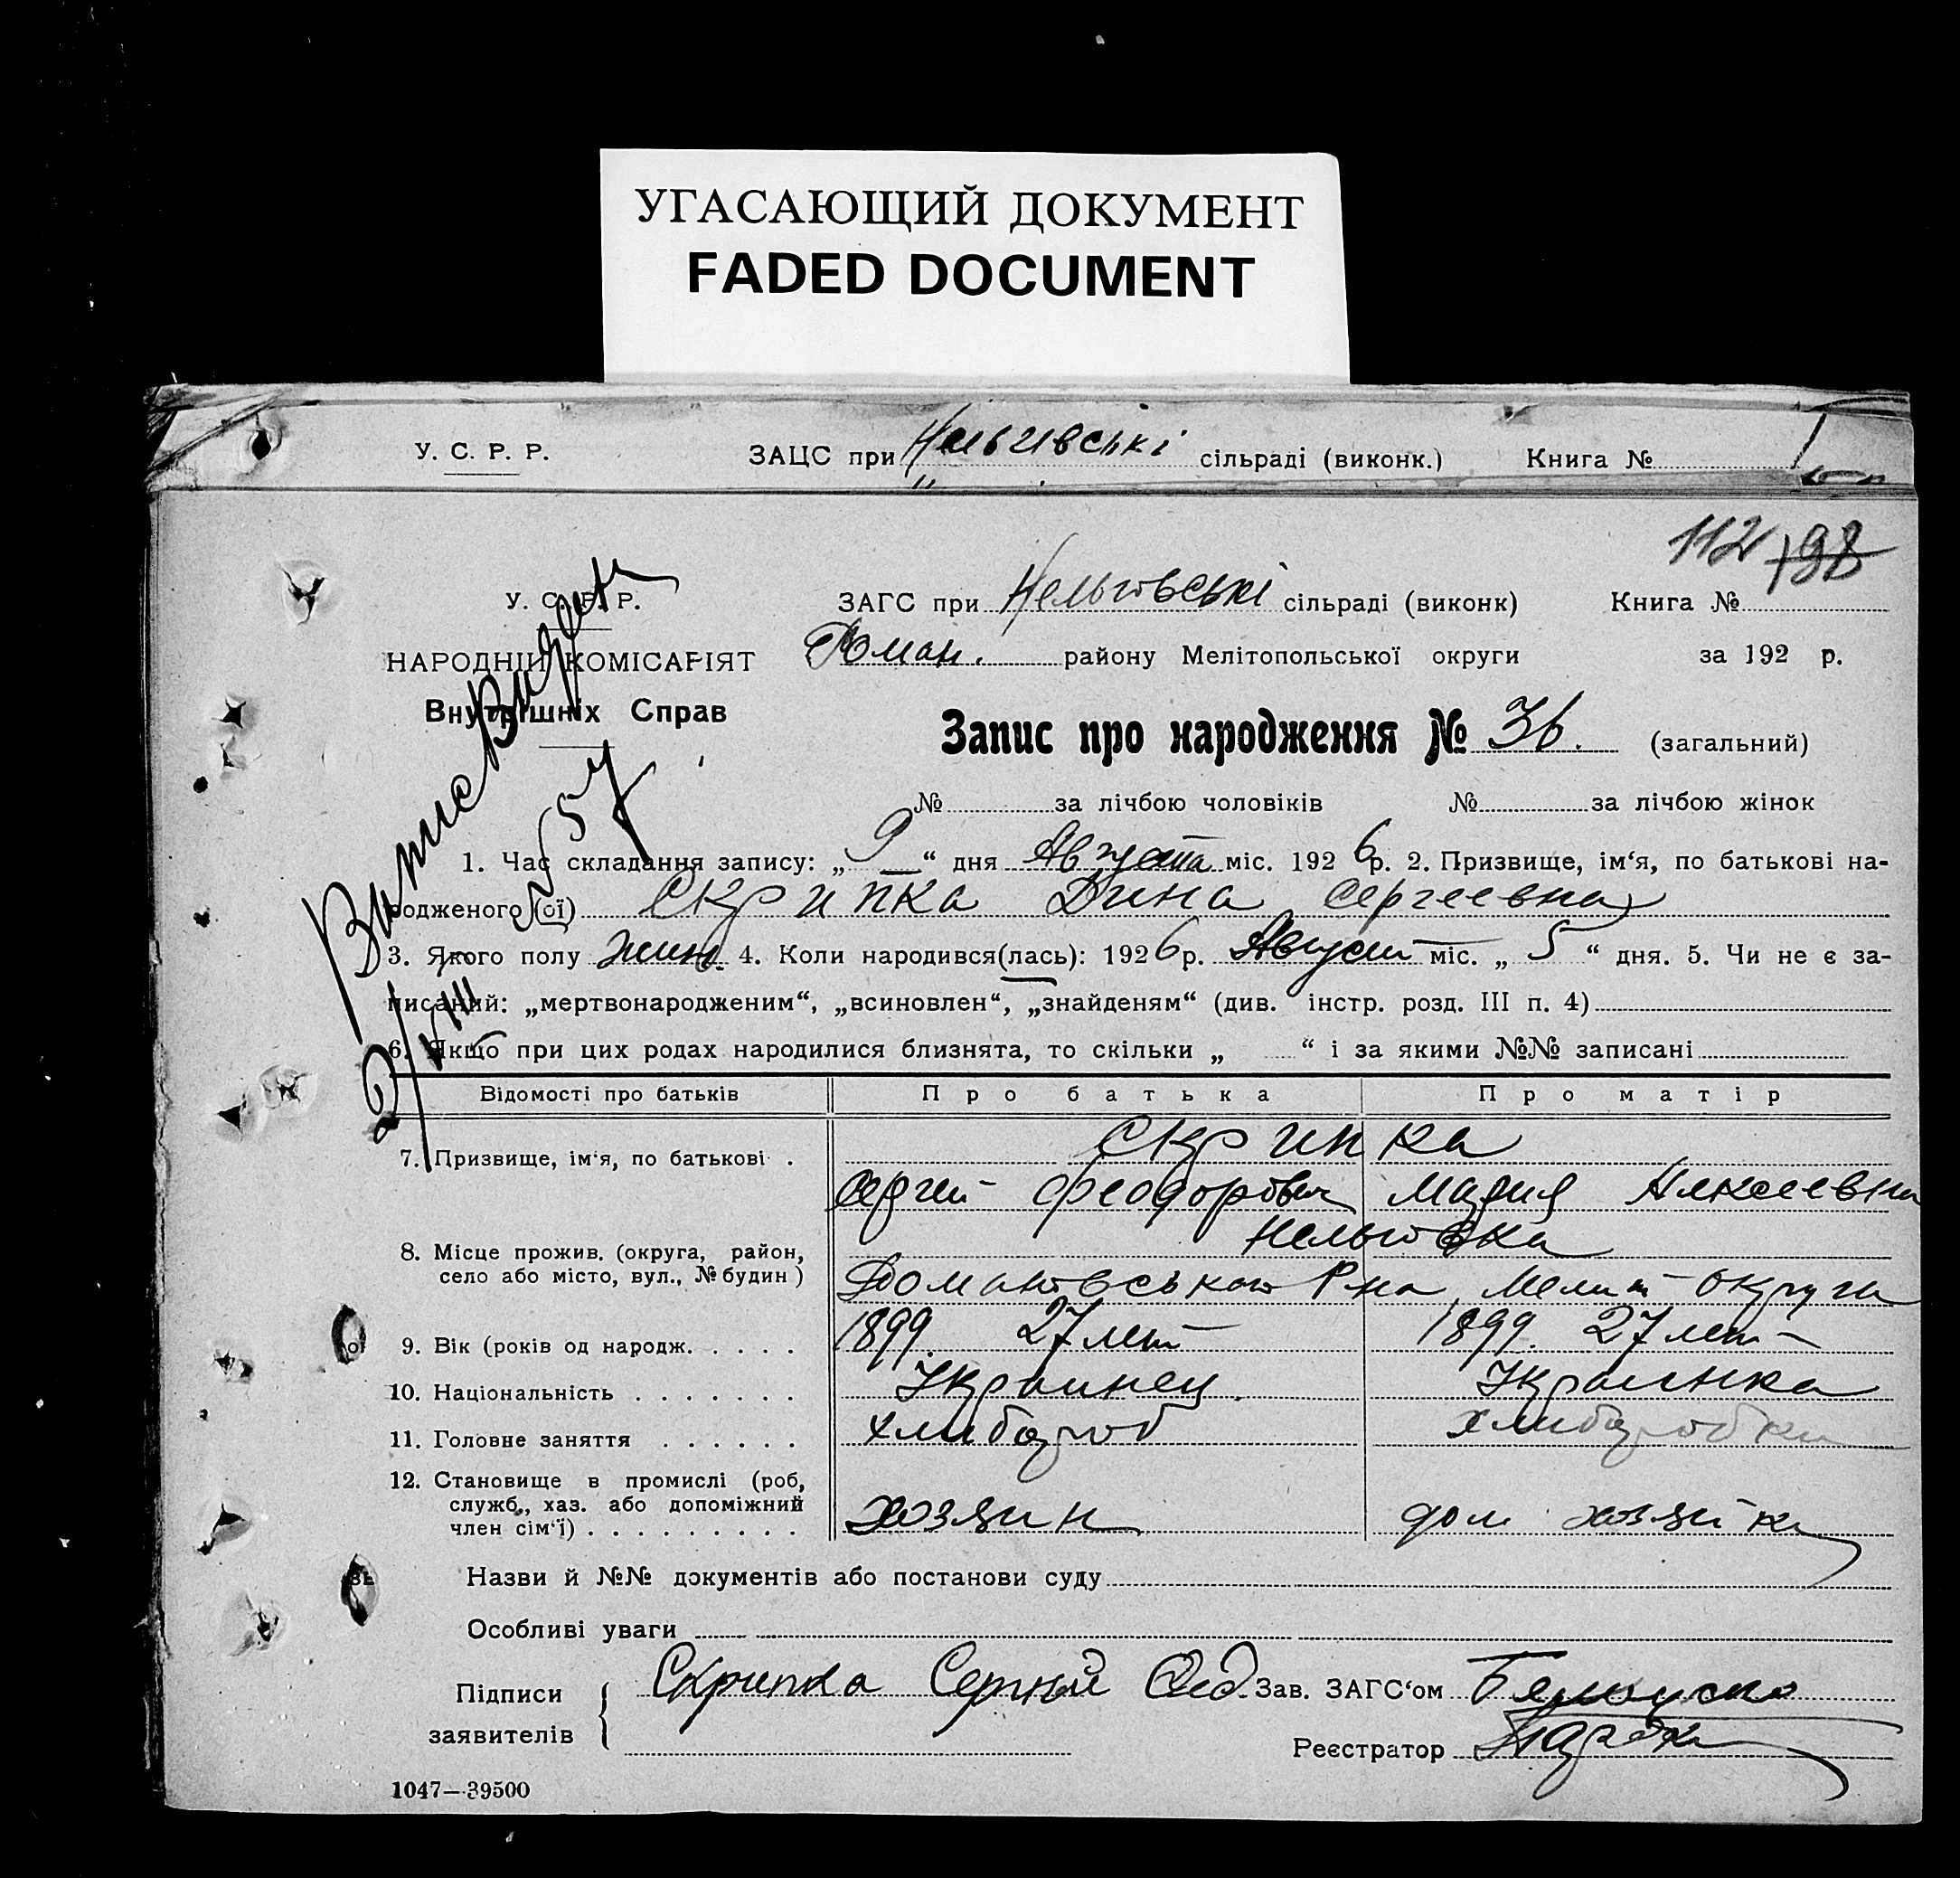 УГАСАЮЩИЙ ДОКУМЕНТ
FADED DOCUMENT
У. С. Р. Р.
ЗАЦС при Нельгівські сільраді (виконк.) Книга №
112 198
У. С. Р. Р.
ЗАГС при Нельговські сільраді (виконк) Книга №
НАРОДНІЙ КОМІСАРІЯТ
район у Мелітопольської округи за 192 р.
Внутрішніх Справ
Запис про народження № 36. (загальний)
№ за лічбою чоловіків № за лічбою жінок
Випис видан
57
1. Час складання запису: „9“ дня Августа міс. 1926р. 2. Призвище, ім‘я, по батькові на-
родженого (ої) Скрипка Дина Сергеевна
3. Якого полу жин. 4. Коли народився(лась): 1926р. Август міс. „5“ дня. 5. Чи не є за-
писаний: „мертвонародженим“, „всиновлен“, „знайденям“ (див. інстр. розд. III п. 4)
6. Якщо при цих родах народилися близнята, то скільки „ “ і за якими №№ записані
Відомості про батьків Про батька Про матір
7. Призвище, ім‘я, по батькові . Скрипка
Сергей Феодорович Мария Алексеевна
8. Місце прожив. (округа, район, село або місто, вул., № будин) Нельговка
Романовського Р-на, Мелит округи
9. Вік (років од народж. . . . . 1899. 27 лет 1899. 27 лет
10. Національність . . . . . . . Украинец. Украинка
11. Головне заняття . . . . . . хлибороб хлиборобка
12. Становище в промислі (роб, служб., хаз. або допоміжний член сім‘ї) . . . . . . . . . хозяин дом хозяйка
Назви й №№ документів або постанови суду
Особливі уваги
Підписи заявителів Скрипка Сергий Зав. ЗАГС‘ом
Реєстратор
1047—39500